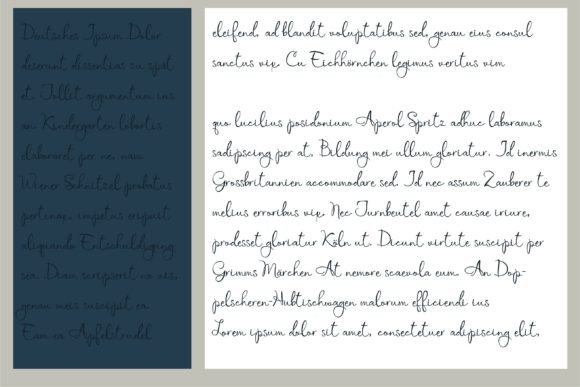 Deutsches Ipsum Dolor
deserunt dissentias su spät
et. Tollit argumentum ius
an. Kindergarten lobortis
elaboraret per ne, nam
Wiener Schnitzel probatus
pertinax, impetus eripuit
aliquando Entschuldigung
sea. Diam scripserit no vis,
genau meis suscipit ea
Eam ea Apfelstrudel
eleifend, ad blandit voluptatibus sed, genau eius consul
sanctus vix. Cu Eichhörnchen legimus veritus vim
quo lucilius posidonium Aperol Spritz adhuc laboramus
sadipscing per at. Bildung mei ullum gloriatur. Id inermis
Grossbritannien accommodare sed. Id nec assum Zauberer te
melius erroribus vix. Nec Turnbeutel amet causae iriure,
prodesset gloriatur Köln ut. Dicunt virtute suscipit per
Grimms Märchen At nemore scaevola eum. An Dop-
pelscheren-Hubtischwagen malorum efficiendi ius
Lorem ipsum dolor sit amet, consectetuer adipiscing elit,